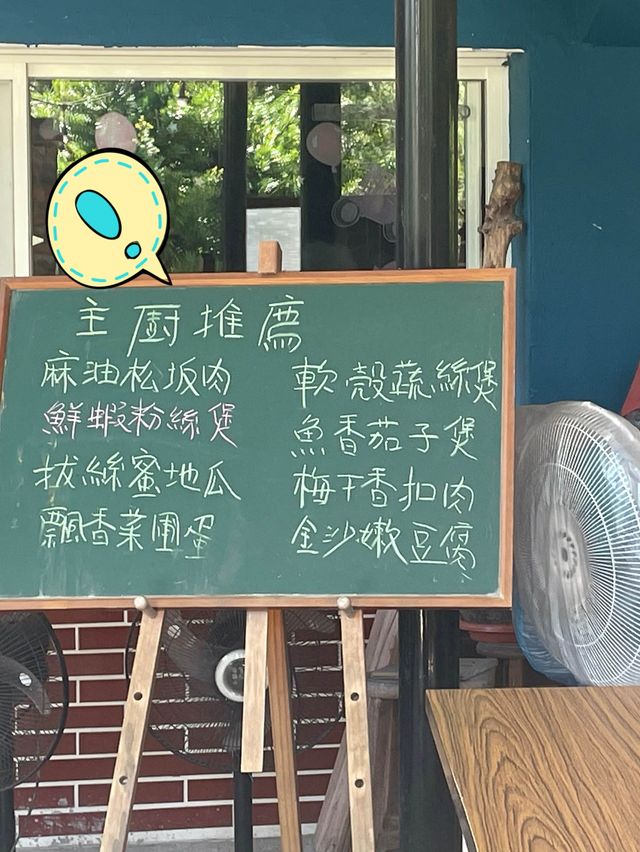 主廚推薦
麻油松坂肉
鮮蝦粉絲煲
拔絲蜜地瓜
飄香菜圃蛋
軟殼蔬絲煲
魚香茄子煲
梅干香扣肉
金沙嫩豆腐